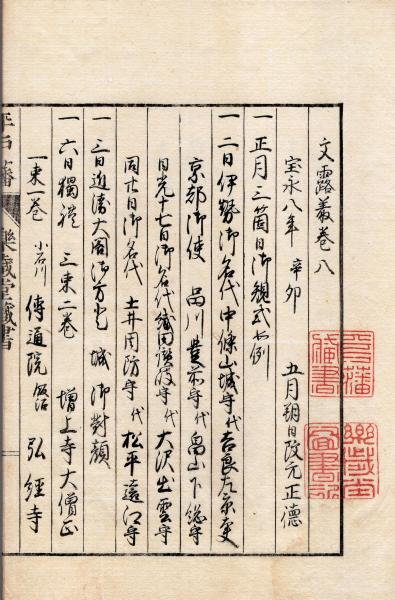 文露叢卷八
宝永八年 辛卯 五月朔日改元正德
一 正月三箇日御規式如例
一 二日伊勢御名代中條山城守代吉良左京
京都御使 品川豊前守代畠山下総守
日光十七日御名代織田 守代大沢出雲守
同廿日御名代 土井周防守代松平遠江守
一 三日近衛大閤御方 城御對顔
一 六日獨禮 三束二巻 増上寺大僧正
一束一巻 小石川 傳通院 飯沼 弘經寺
樂歳堂藏書